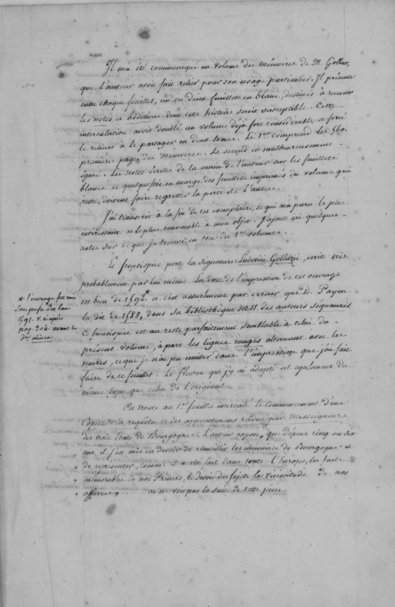 Il m'a été communiqué un volume des mémoires de M. Gollut,
que l'auteur avoit fait relier pour son usage particulier. Il présente
entre chaque feuillet, un ou deux feuillets en blanc, destinés à recevoir
les notes & additions dont cette histoire seroit susceptible. Cette
intercalation avoit doublé un volume déjà fort considérable et forcé
le relieur à le partager en deux tomes. Le 1er comprend les
premières pages des mémoires. Le second est malheureusement
égaré. Les notes écrites de la main de l'auteur sur les feuillets
blancs et quelquefois en marge des feuillets imprimés du volume qui
reste, doivent faire regretter la perte de l'autre.
J'ai transcrit à la fin de cet exemplaire, ce qui m'a paru le plus
intéressant et le plus convenable à mon objet. J'ajoute ici quelques
notes sur ce que je trouve en tête du 1er volume.
Le frontispice porte la signature Ludovic Gollut,
probablement par lui même. La date de l'impression de cet ouvrage
est bien de 1592 et c'est assurément par erreur que D. Payen
la dit de 1588, dans sa bibliothèque des auteurs séquanois
Ce frontispice est au reste parfaitement semblable à celui du
présent volume, à part les lignes rouges alternant avec les
noires, ce que je n'ai pu imiter dans l'impression que j'ai fait
faire de ce feuillet. Le fleuron que j'y ai adapté est également du
même type que celui de l'original.
On trouve au 1er feuillet intercalé le commencement d'une
copie de la requête et des appointemens
des trois états de Bourgogne. L'auteur expose, que depuis cinq ou six
ans, il s'est mis en devoir de recueillir les mémoires de Bourgogne et
de représenter, comme il a été fait dans toute l'Europe, les faits
mémorables de nos Princes, le devoir des sujets, la vicissitude de nos
affaires. on ne voit pas la suite de cette pièce.